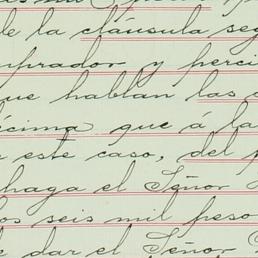 de la cláusula seg
mprador y perci
que hablan las
écima que á la
este caso, del
haga el Señor
los seis mil peso
dar el Señor